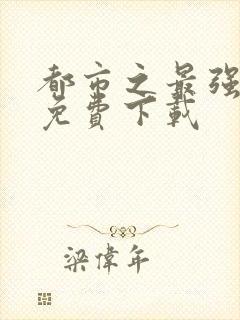 都市之最强
免費下載
梁偉年